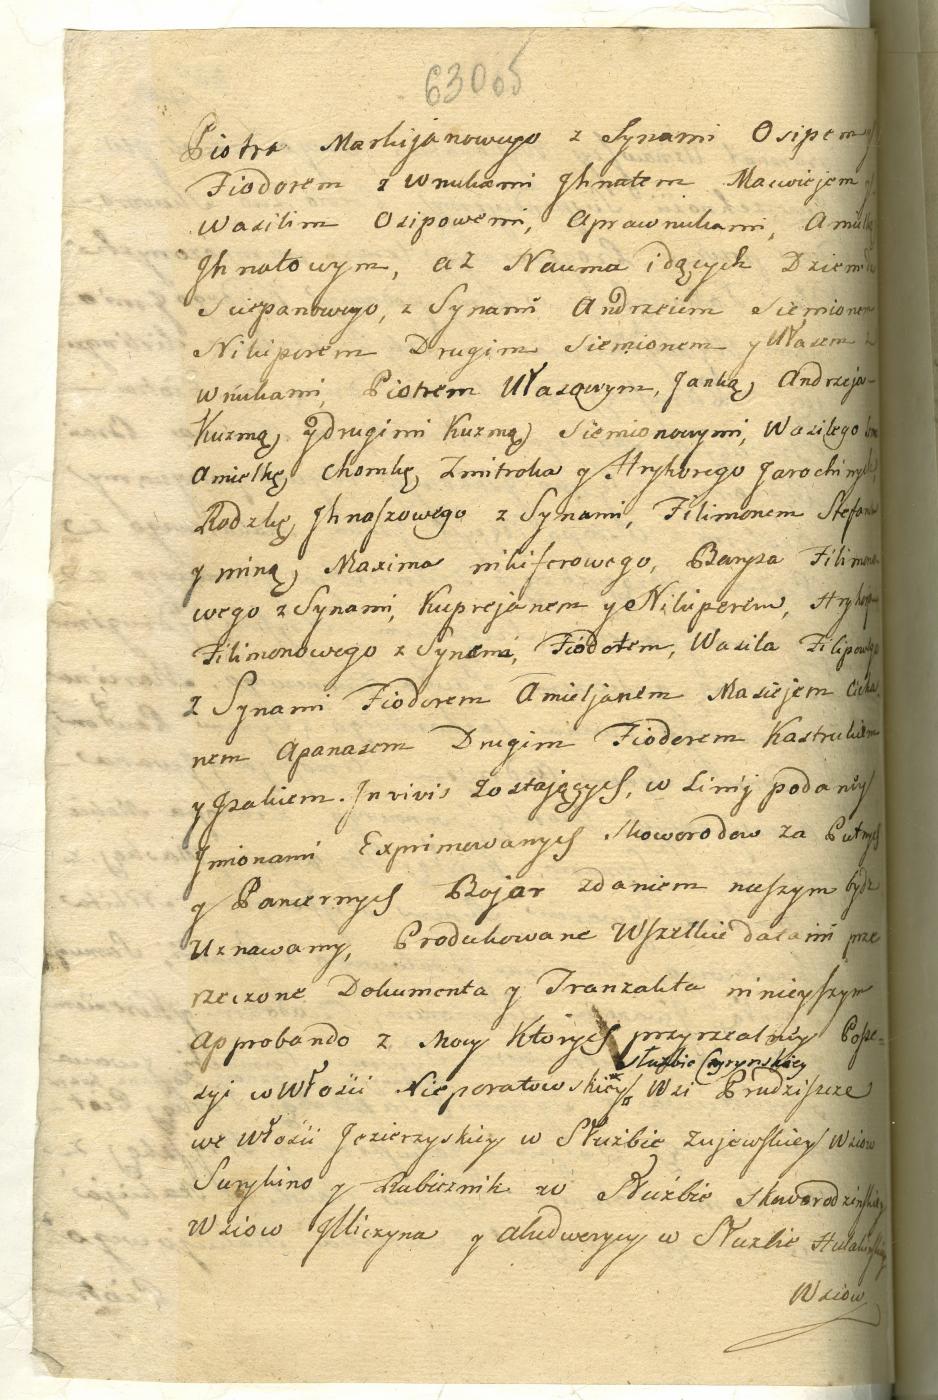 630 05
Piotra Markijanowego z Synami Osipem y
Fiodorem z wnukami Jhnatem Maciejem y
Wasilim Osipowemi, Aprawnukami, Amielką
Jhnatowym, aż Nauma idących Dziemida
Sciepanowego, z Synami Andrzeiem Siemionem
Nikiporem Drugim Siemionem y Ułasem z
wnukami, Piotrem Ułasowym, Janką, Andrzeja-
Kuzmą, ydrugimi Kuzmą, Siemionowymi, Wasilego
Amielkę, Chomkę, Zmitroka y Hryhorego Jarochinych,
Rodzkę, Jhnaszowego z Synami, Filimonem Stefanem
y miną, Maxima nikiferowego, Barysa Filimono-
wego z Synami, Kuprejanem y Nikiperem, Hryhora
Filimonowego z Synami, Fiodotem, Wasila Filipowego
z Synami Fiodorem Amieljanem Maciejem Cicha
nem Apanasem Drugim Fiodorem Kastrukiem
y Jzakiem. Jn vivis zostających, w Linij podanéy
Jmionami Exprimowanych Skoworodow za Putnych
y Pancernych Bojar zdaniem naszym bydź
Uznawamy, Produkowane Wszelkie datami prze
rzeczone Dokumenta y Tranzakta ninieyszym
approbando z mocy Których przyrzealnéy Posse=
służbie Czyrynskiey
syi w Włości Nieporatowskiey, Wsi Prudziszcze
we Włości Jezierzyskiey w Służbie Zujewskiey Wsiow
Surykino y Rubieznik w Służbie skaworodzinskiey
Wsiow Jlliczyna y aludwerycy w Służbie
Wsiow